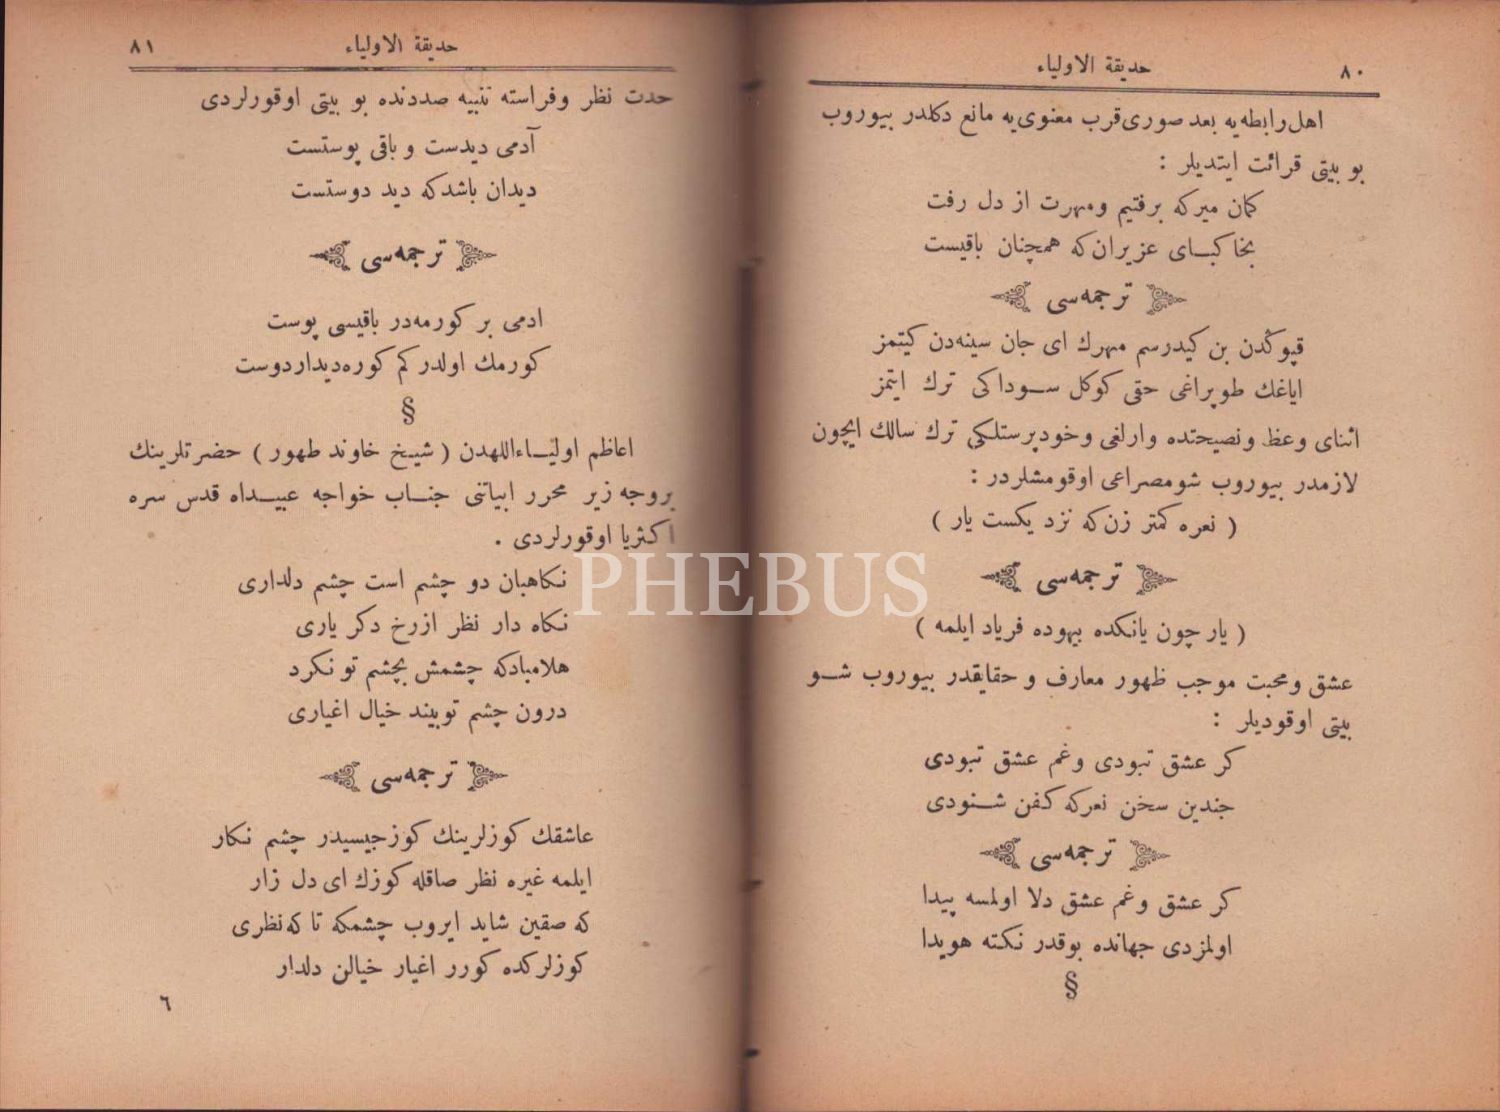 ٨٠
حديقة الاولياء
اهل رابطه‌يه بعد صورى قرب معنوى‌يه مانع دكلدر بيوروب
بو بيتى قرائت ايتديلر :
كمان ميركه برفتيم ومهرت از دل رفت
بخا كپاى عزيران‌كه همچنان باقيست
ترجمه‌سى
قپوڭدن بن كيدرسم مهرك اى جان سينه‌دن كيتمز
اياغك طوپراغى حقى كوكل سوداكى ترك ايتمز
اثناى وعظ ونصيحتده وارلغى وخودپرستلكى ترك سالك ايچون
لازمدر بيوروب شومصراعى اوقومشلردر :
( نعره كمتر زن‌كه نزد يكست يار )
ترجمه‌سى
( يار چون يانكده بيهوده فرياد ايلمه )
عشق ومحبت موجب ظهور معارف و حقايقدر بيوروب شو
بيتى اوقوديلر :
كر عشق نبودى وغم عشق نبودى
جندين سخن نعركه كفن شنودى
ترجمه‌سى
كر عشق وغم عشق دلا اولمسه پيدا
اولمزدى جهانده بوقدر نكته هويدا
§
حديقة الاولياء
٨١
حدت نظر وفراسته تنبيه صددنده بو بيتى اوقورلردى
آدمى ديدست و باقى پوستست
ديدان باشدكه ديد دوستست
ترجمه‌سى
ادمى بر كورمه‌در باقيسى پوست
كورمك اولدر كم كوره‌ديداردوست
§
اعاظم اولياءاللهدن ( شيخ خاوند طهور ) حضرتلرينك
بروجه زير محرر ابياتنى جناب خواجه عبيداه قدس سره
اكثريا اوقورلردى .
نكاهبان دو چشم است چشم دلدارى
نكاه دار نظر ازرخ دكر يارى
هلامبادكه چشمش بچشم تو نكرد
درون چشم توبيند خيال اغيارى
ترجمه‌سى
عاشقك كوزلرينك كوزجيسيدر چشم نكار
ايلمه غيره نظر صاقله كوزك اى دل زار
كه صقين شايد ايروب چشمكه تا كه‌نظرى
كوزلركده كورر اغيار خيالن دلدار
٦
PHEBUS